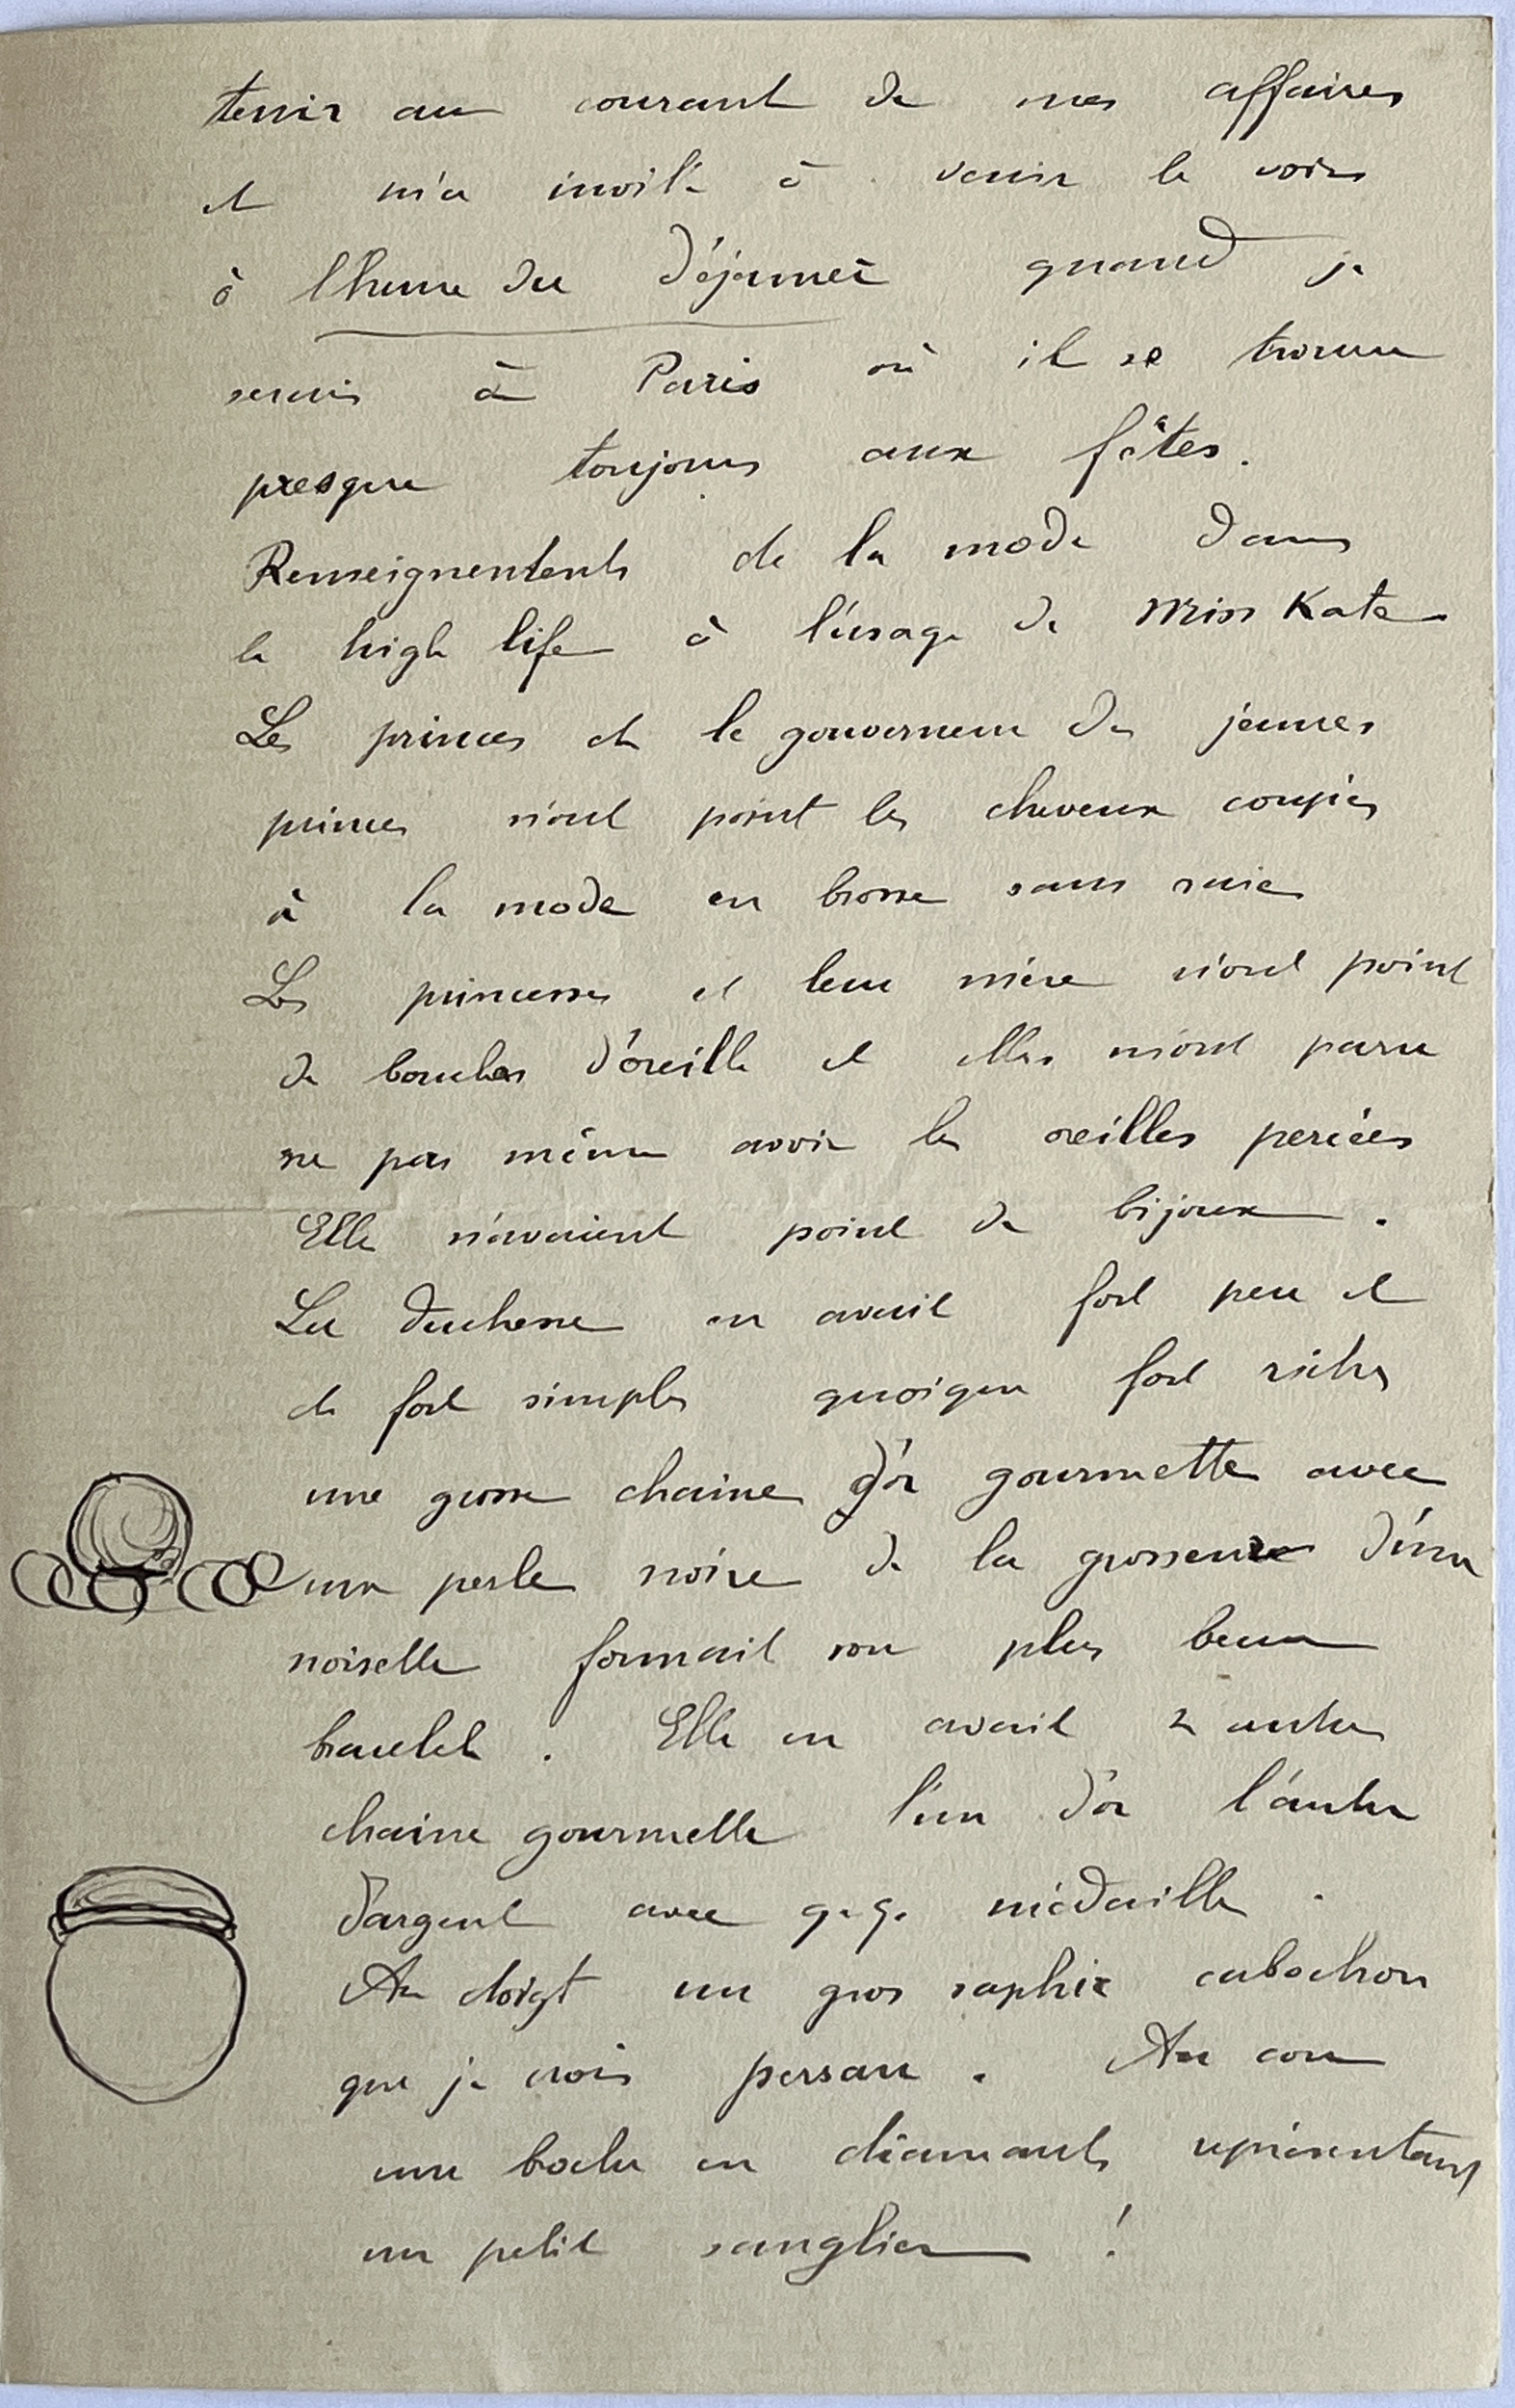 tenir au courant de mes affaires
et m'a invité à venir le voir
à l'heure du déjeuner quand je
serais à Paris où il se trouve
presque toujours aux fêtes.
Renseignements de la mode dans
le high life à l'usage de Miss Kate
Les princes et le gouverneur des jeunes
princes n'ont point les cheveux coupés
à la mode en brosse sans raie
Les princesses et leur mère n'ont point
de boucles d'oreille et elles m'ont paru
ne pas même avoir les oreilles percées
Elle n'avaient point de bijoux.
La duchesse en avait fort peu et
de fort simples quoique fort riches
une grosse chaine d'or gourmette avec
une perle noire de la grosseur d'une
noisette formait son plus beau
bracelet. Elle en avait 2 autres
chaine gourmette l'un d'or l'autre
d'argent avec q.q. médaille.
Au doigt un gros saphir cabochon
que je crois persan. Au cou
une broche en diamants représentant
un petit sanglier !